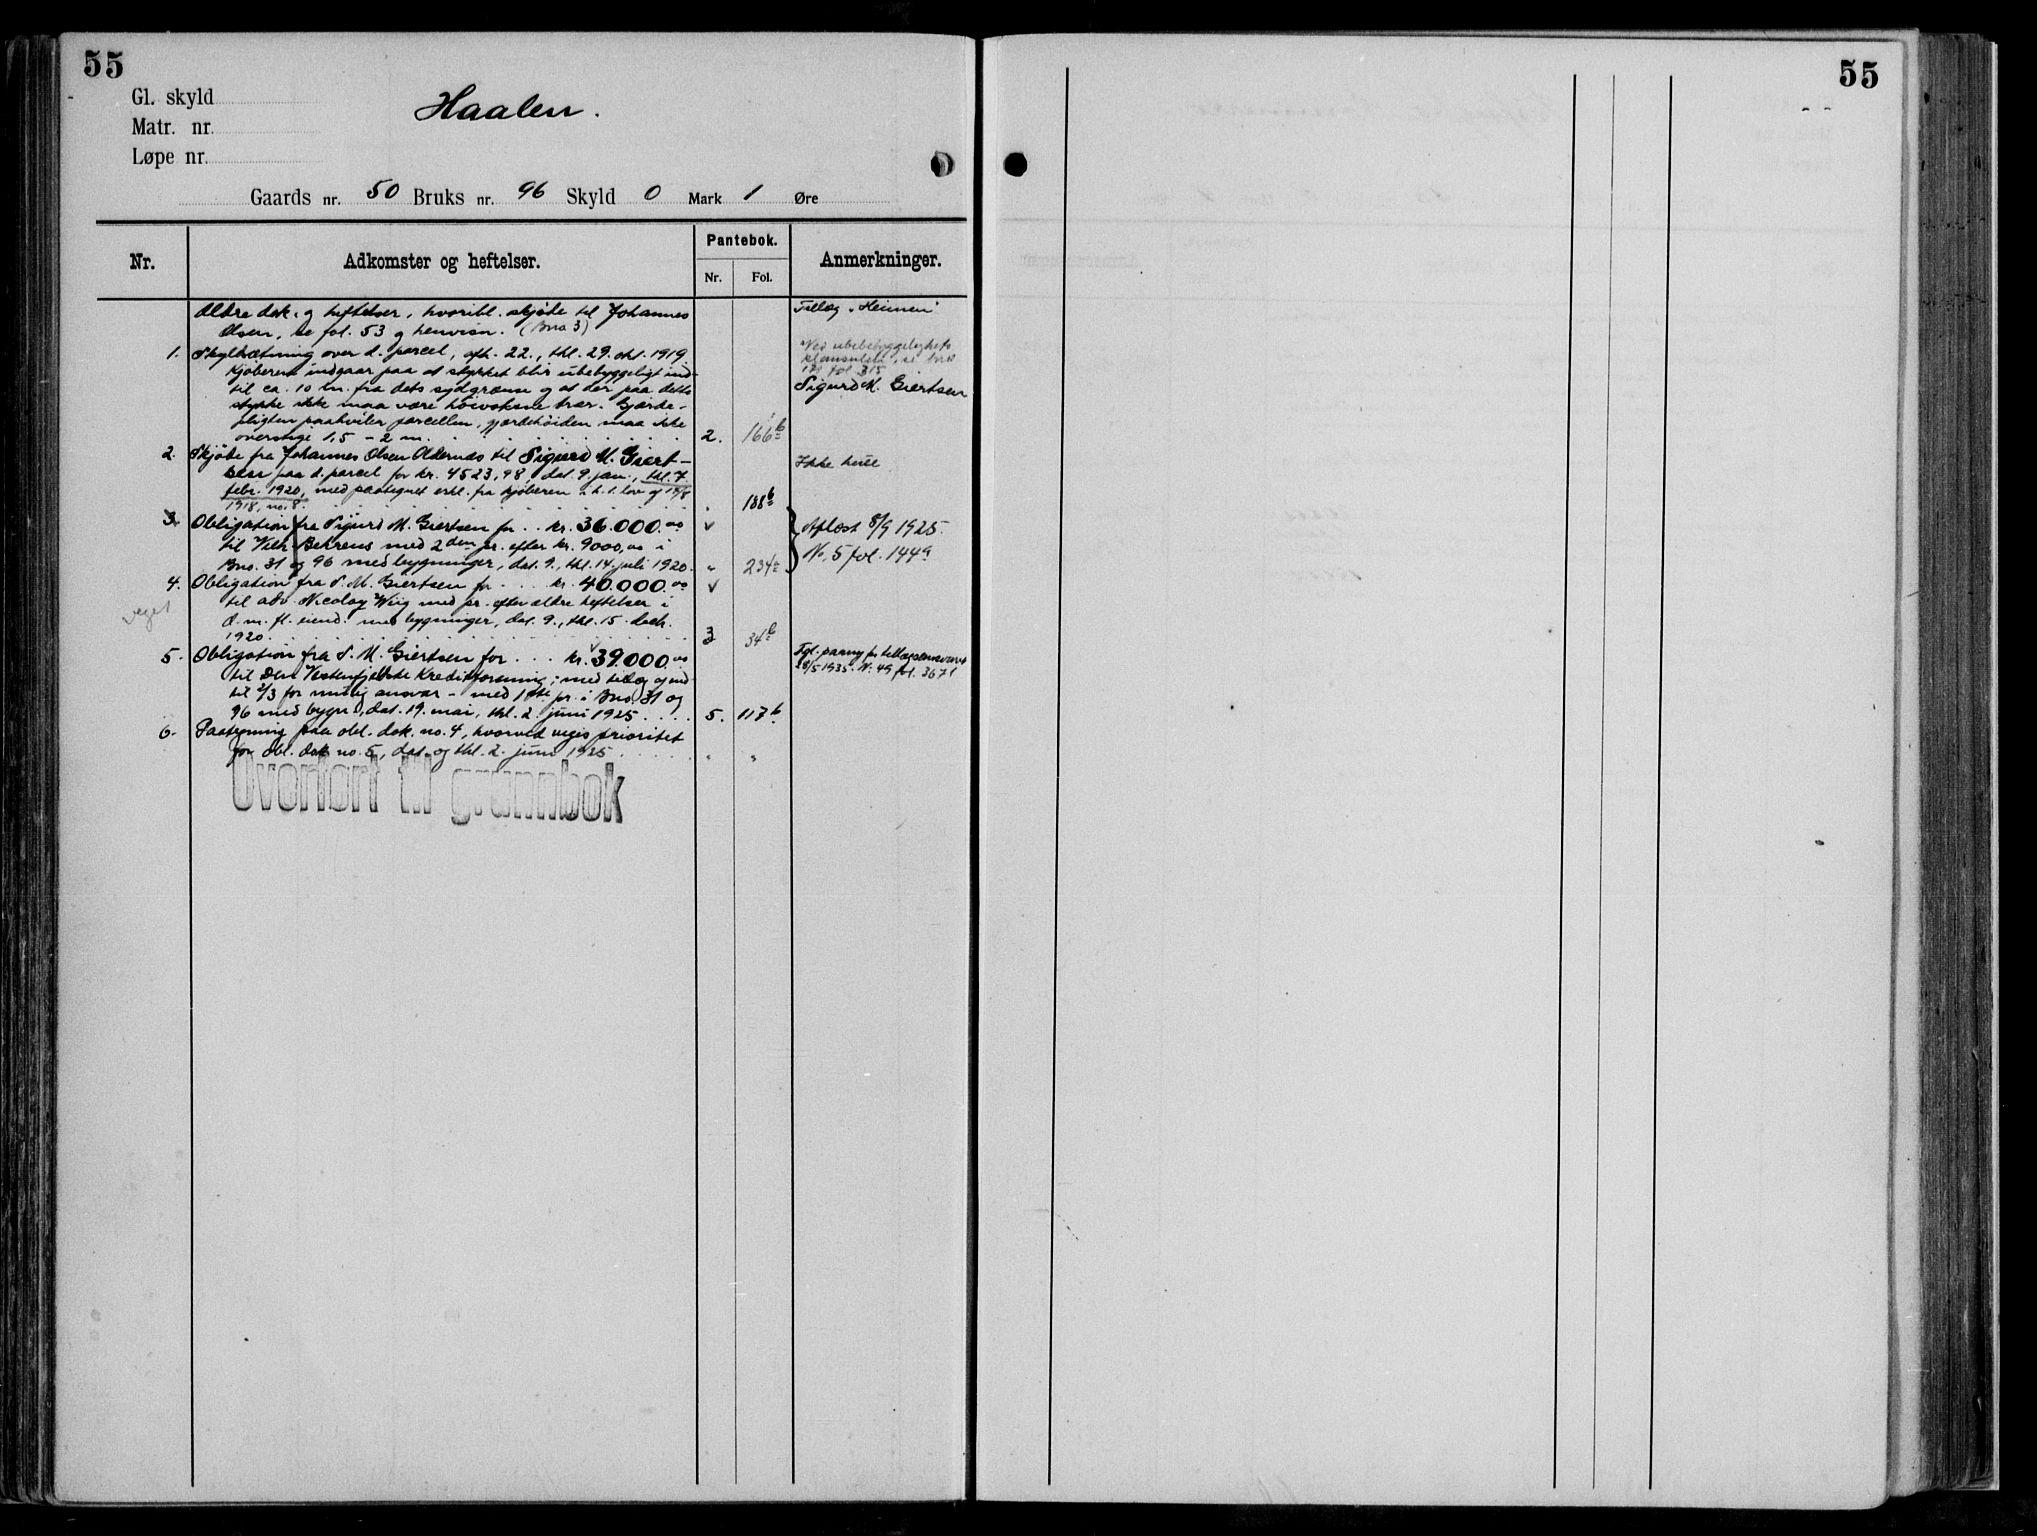 55
Gl. skyld
Haalen.
Matr. nr.
Løpe nr.
Gaards nr. 50 Bruks nr. 96 Skyld 0 Mark 1 Øre
Nr.
Adkomster og heftelser.
Pantebok.
Nr. Fol.
Anmerkninger.
Ældre dok. og heftelser, hvoribl. skjøte til Johannes
Olsen, se fol. 53 og henvisn. (Bno 3)
Tillæg "Heimen"
1. Skyldsætning over d. parcel, afh. 22., thl. 29. okt. 1919.
Kjøberen indgaar paa at stykket blir ubebyggeligt ind-
til ca. 10 m. fra dets sydgrænse og at der paa dette
stykke ikke maa være høivoksne trær. Gjærde-
pligten paahviler parcellen, gjærdehøiden maa ikke
overstige 1,5 - 2 m. 2. 166b
Ved ubebyggelighets
klausulen, se bno
fol 315
Sigurd M. Giertsen
2. Skjøte fra Johannes Olsen Aldernæs til Sigurd M. Giert-
sen paa d. parcel for kr. 4523,98, dat. 9. jan., thl. 7.
febr. 1920, med paategnet erkl. fra kjøberen i h. t. lov af 14/8
1918, no. 8. 188b
Ikke huse
3. Obligation fra Sigurd M. Giertsen for .. kr. 36.000.00
til Vilh. Behrens med 2den pr. efter kr. 9000,00 i
Bno. 31 og 96 med bygninger, dat. 9., thl. 14. juli 1920. " 234a
Avlæst 8/9 1925.
N. 5 fol. 144a
4. Obligation fra S. M. Giertsen for ... kr. 40.000.00
til adv. Nicolay Wiig med pr. efter ældre heftelser i
d. m. fl. eiend. med bygninger, dat. 9., thl. 15. decbr.
1920. 3 34b
veget
5. Obligation fra S. M. Giertsen for ... kr. 39.000.00
til Den Vestenfjeldske Kreditforening; med tillæg ind
til 2/3 for mulig ansvar - med 1ste pr. i Bno. 31 og
96 med bygn., dat. 19. mai, thl. 2. juni 1925. 5. 117b
Tgl. paany for tillægsansvaret
8/5 1935. N. 49 fol. 367
6. Paategning paa obl. dok. no. 4, hvorved viges prioritet
for obl. dok no. 5, dat. og thl. 2. juni 1925 " "
Overført til grunnbok
55